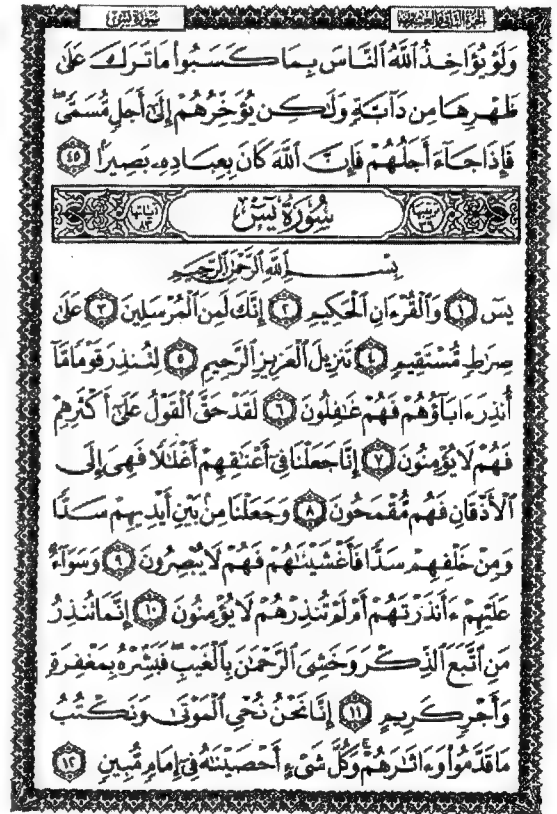 الجزء الثاني والعشرون
سورة يس
وَلَوْ يُؤَاخِذُ اللَّهُ النَّاسَ بِمَا كَسَبُوا مَا تَرَكَ عَلَىٰ
ظَهْرِهَا مِن دَآبَّةٍ وَلَٰكِن يُؤَخِّرُهُمْ إِلَىٰٓ أَجَلٍ مُّسَمًّى ۖ
فَإِذَا جَآءَ أَجَلُهُمْ فَإِنَّ اللَّهَ كَانَ بِعِبَادِهِ بَصِيرًا ٤٥
ترتيبها ٣٦ سُورَةُ يسٓ آياتها ٨٣
بِسْمِ اللَّهِ الرَّحْمَٰنِ الرَّحِيمِ
يسٓ ١ وَالْقُرْءَانِ الْحَكِيمِ ٢ إِنَّكَ لَمِنَ الْمُرْسَلِينَ ٣ عَلَىٰ
صِرَاطٍ مُّسْتَقِيمٍ ٤ تَنزِيلَ الْعَزِيزِ الرَّحِيمِ ٥ لِتُنذِرَ قَوْمًا مَّآ
أُنذِرَ ءَابَآؤُهُمْ فَهُمْ غَٰفِلُونَ ٦ لَقَدْ حَقَّ الْقَوْلُ عَلَىٰٓ أَكْثَرِهِمْ
فَهُمْ لَا يُؤْمِنُونَ ٧ إِنَّا جَعَلْنَا فِىٓ أَعْنَٰقِهِمْ أَغْلَٰلًا فَهِىَ إِلَى
الْأَذْقَانِ فَهُم مُّقْمَحُونَ ٨ وَجَعَلْنَا مِنۢ بَيْنِ أَيْدِيهِمْ سَدًّا
وَمِنْ خَلْفِهِمْ سَدًّا فَأَغْشَيْنَٰهُمْ فَهُمْ لَا يُبْصِرُونَ ٩ وَسَوَآءٌ
عَلَيْهِمْ ءَأَنذَرْتَهُمْ أَمْ لَمْ تُنذِرْهُمْ لَا يُؤْمِنُونَ ١٠ إِنَّمَا تُنذِرُ
مَنِ اتَّبَعَ الذِّكْرَ وَخَشِىَ الرَّحْمَٰنَ بِالْغَيْبِ ۖ فَبَشِّرْهُ بِمَغْفِرَةٍ
وَأَجْرٍ كَرِيمٍ ١١ إِنَّا نَحْنُ نُحْىِ الْمَوْتَىٰ وَنَكْتُبُ
مَا قَدَّمُوا وَءَاثَٰرَهُمْ ۚ وَكُلَّ شَىْءٍ أَحْصَيْنَٰهُ فِىٓ إِمَامٍ مُّبِينٍ ١٢